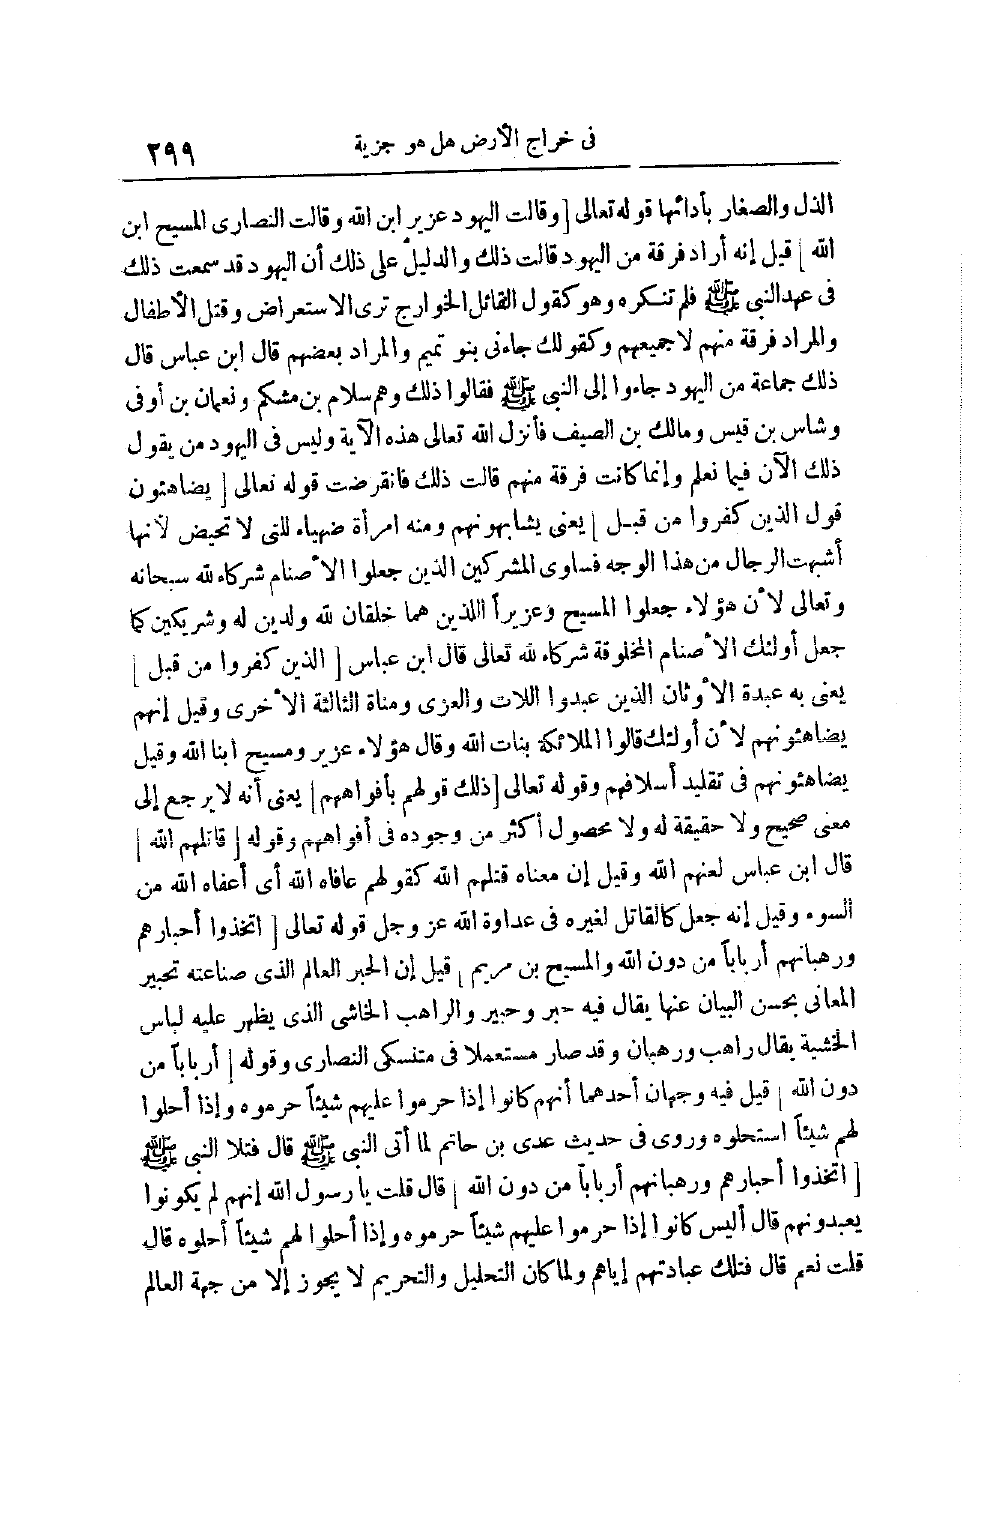 فى خراج الأرض هل هو جزية ٢٩٩
الذل والصغار بأدائها قوله تعالى [ وقالت اليهود عزير ابن الله وقالت النصارى المسيح ابن
الله ] قيل إنه أراد فرقة من اليهود قالت ذلك والدليل على ذلك أن اليهود قد سمعت ذلك
فى عهد النبى ﷺ فلم تنكره وهو كقول القائل الخوارج ترى الاستعراض وقتل الأطفال
والمراد فرقة منهم لا جميعهم وكقولك جاءنى بنو تميم والمراد بعضهم قال ابن عباس قال
ذلك جماعة من اليهود جاءوا إلى النبى ﷺ فقالوا ذلك وهم سلام بن مشكم ونعمان بن أوفى
وشاس بن قيس ومالك بن الصيف فأنزل الله تعالى هذه الآية وليس فى اليهود من يقول
ذلك الآن فيما نعلم وإنما كانت فرقة منهم قالت ذلك فانقرضت قوله تعالى [ يضاهئون
قول الذين كفروا من قبل ] يعنى يشابهونهم ومنه امرأة ضهياء للتى لا تحيض لأنها
أشبهت الرجال من هذا الوجه فساوى المشركين الذين جعلوا الأصنام شركاء لله سبحانه
وتعالى لأن هؤلاء جعلوا المسيح وعزيراً اللذين هما خلقان لله ولدين له وشريكين كما
جعل أولئك الأصنام المخلوقة شركاء لله تعالى قال ابن عباس [ الذين كفروا من قبل ]
يعنى به عبدة الأوثان الذين عبدوا اللات والعزى ومناة الثالثة الأخرى وقيل إنهم
يضاهئونهم لأن أولئك قالوا الملائكة بنات الله وقال هؤلاء عزير ومسيح ابنا الله وقيل
يضاهئونهم فى تقليد أسلافهم وقوله تعالى [ ذلك قولهم بأفواههم ] يعنى أنه لا يرجع إلى
معنى صحيح ولا حقيقة له ولا محصول أكثر من وجوده فى أفواههم وقوله [ قاتلهم الله ]
قال ابن عباس لعنهم الله وقيل إن معناه قتلهم الله كقولهم عافاه الله أى أعفاه الله من
السوء وقيل إنه جعل كالقاتل لغيره فى عداوة الله عز وجل قوله تعالى [ اتخذوا أحبارهم
ورهبانهم أرباباً من دون الله والمسيح بن مريم ] قيل إن الحبر العالم الذى صناعته تحبير
المعانى بحسن البيان عنها يقال فيه حبر وحبير والراهب الخاشى الذى يظهر عليه لباس
الخشية يقال راهب ورهبان وقد صار مستعملا فى متنسكى النصارى وقوله [ أرباباً من
دون الله ] قيل فيه وجهان أحدهما أنهم كانوا إذا حرموا عليهم شيئاً حرموه وإذا أحلوا
لهم شيئاً استحلوه وروى فى حديث عدى بن حاتم لما أتى النبى ﷺ قال فتلا النبى ﷺ
[ اتخذوا أحبارهم ورهبانهم أرباباً من دون الله ] قال قلت يا رسول الله إنهم لم يكونوا
يعبدونهم قال أليس كانوا إذا حرموا عليهم شيئاً حرموه وإذا أحلوا لهم شيئاً أحلوه قال
قلت نعم قال فتلك عبادتهم إياهم ولما كان التحليل والتحريم لا يجوز إلا من جهة العالم